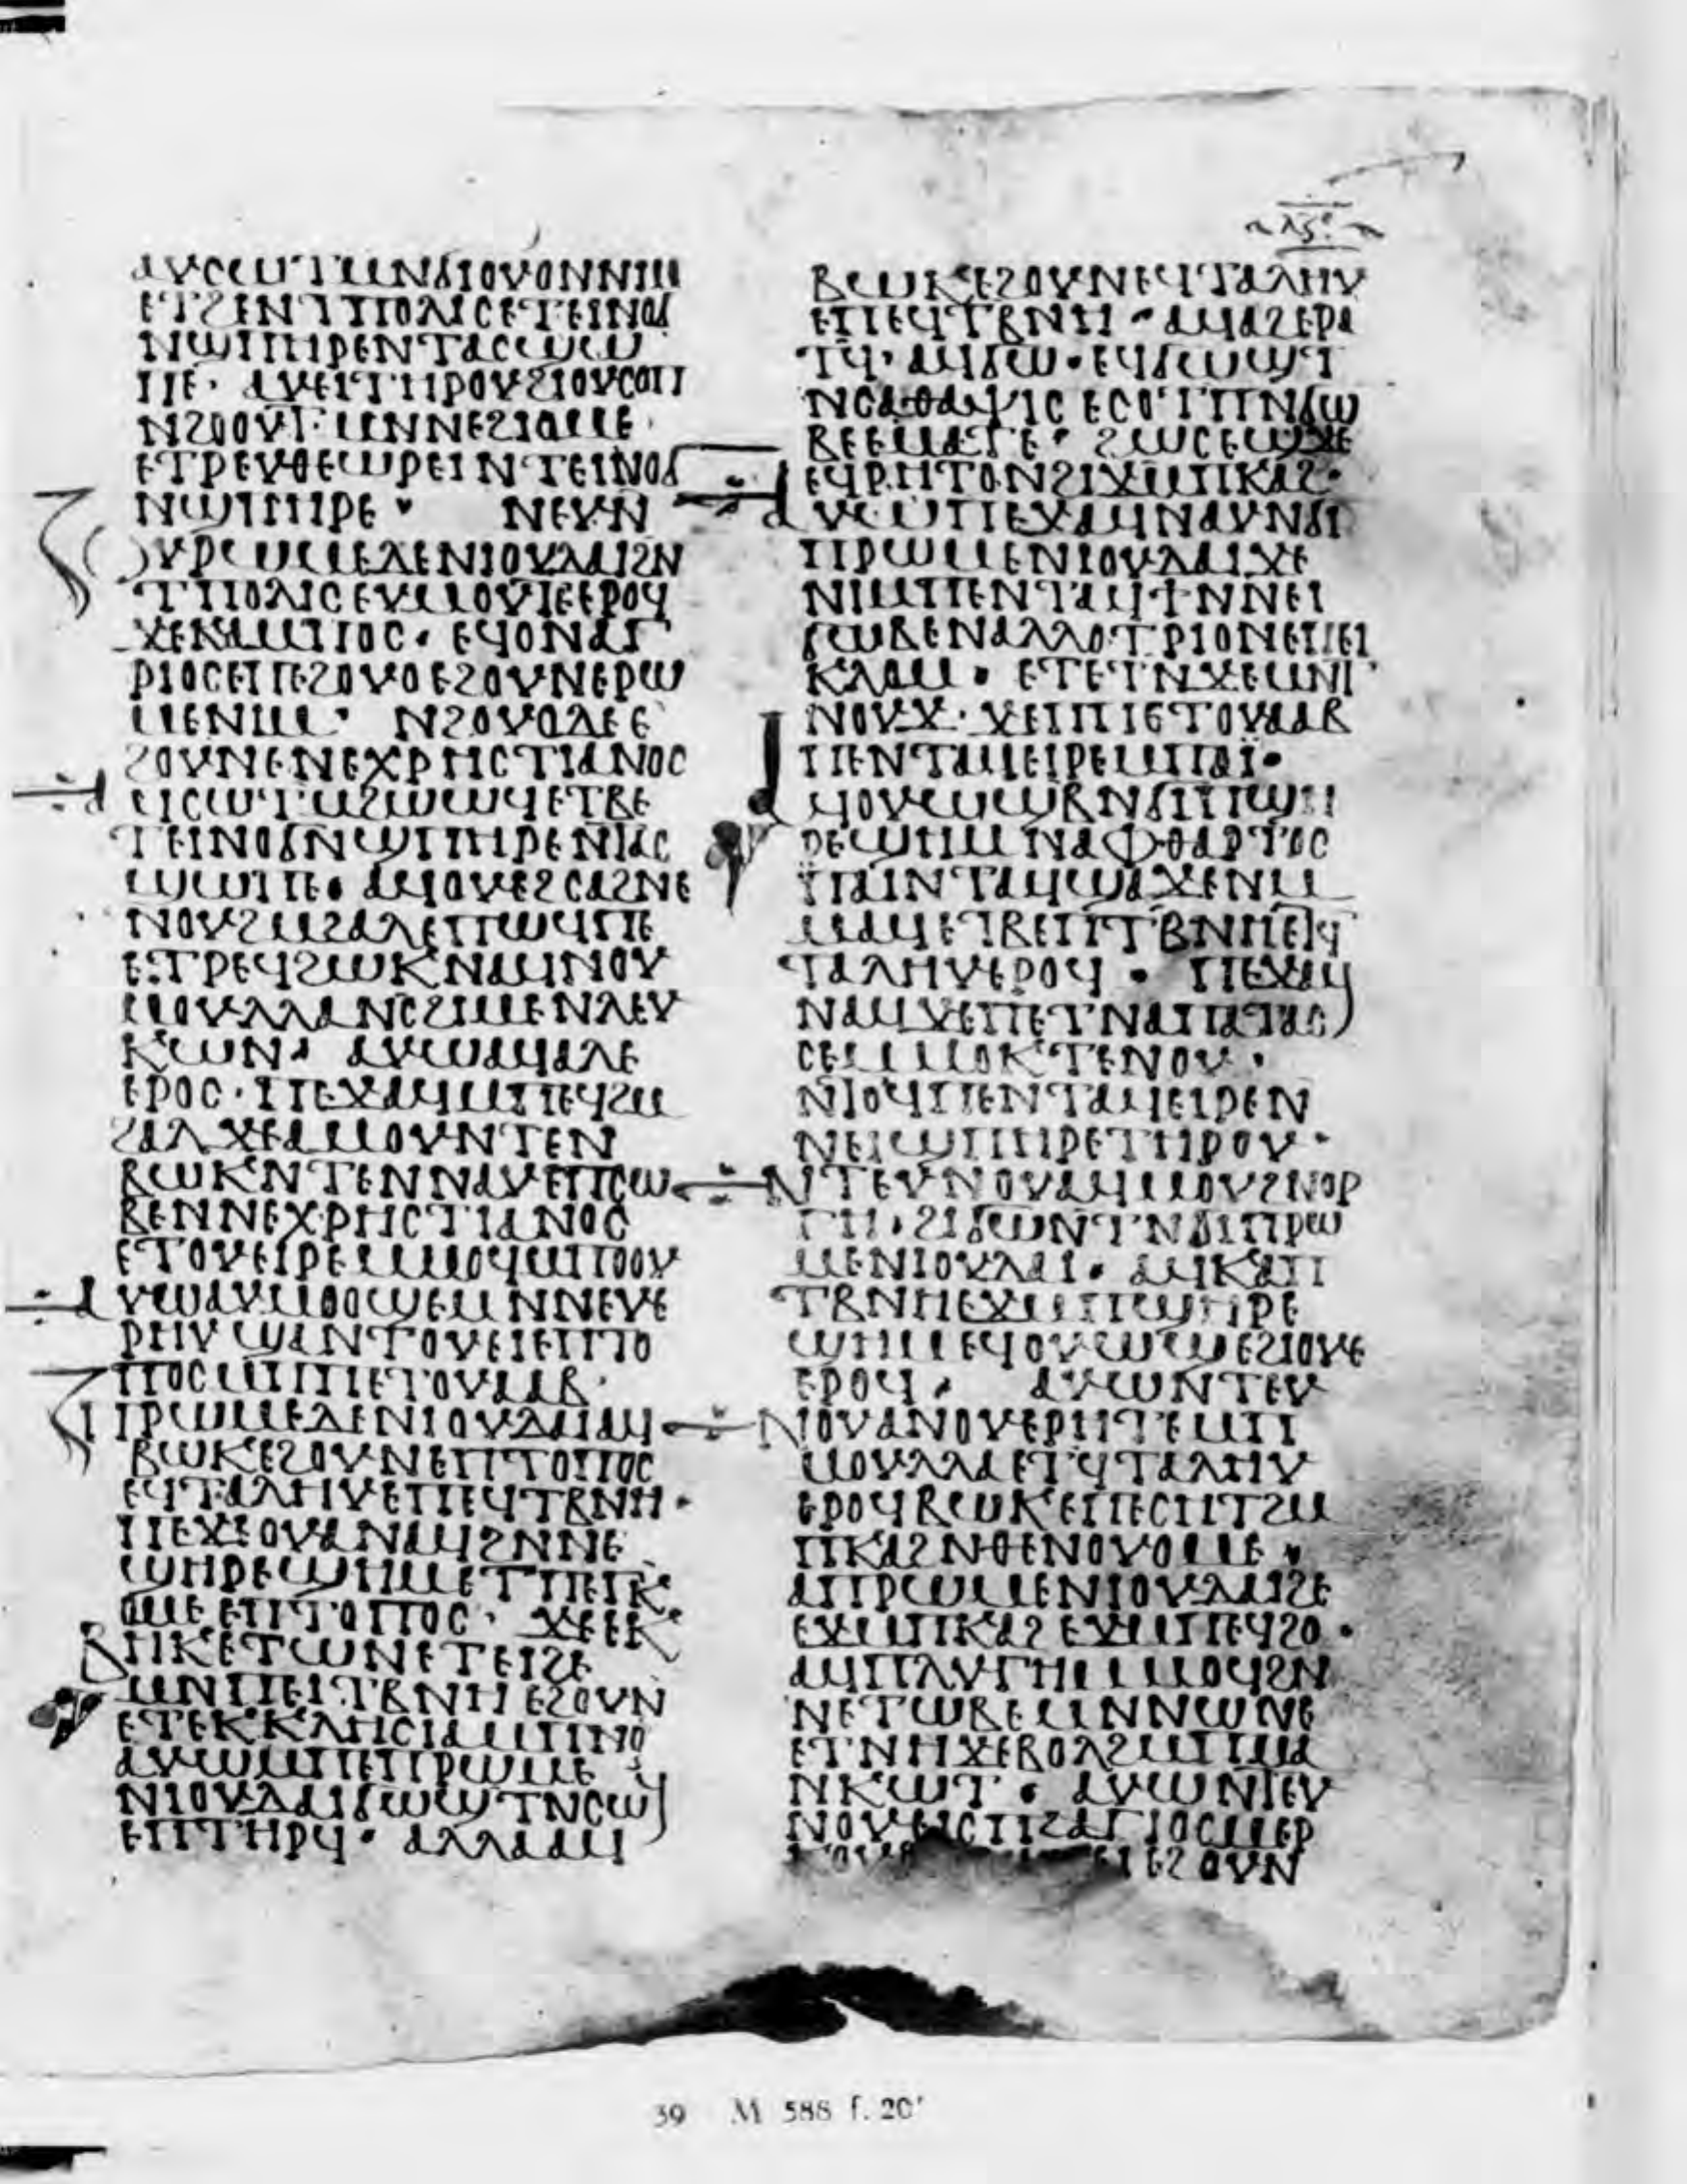 ⲗⲋ
ⲁⲩⲥⲱⲧⲙⲛϭⲓⲟⲩⲟⲛⲛⲓⲙ
ⲉⲧϩⲉⲛⲧⲡⲟⲗⲓⲥⲉⲧⲉⲓⲛⲟϭ
ⲛϣⲡⲏⲣⲉⲛⲧⲁⲥϣⲱ
ⲡⲉ· ⲁⲩⲉⲓⲧⲏⲣⲟⲩϩⲓⲟⲩⲥⲟⲡ
ⲛϩⲟⲟⲩⲧ· ⲙⲛⲛⲉϩⲓⲟⲙⲉ·
ⲉⲧⲣⲉⲩⲑⲉⲱⲣⲉⲓⲛⲧⲉⲓⲛⲟϭ
ⲛϣⲡⲏⲣⲉ· ⲛⲉⲩⲛ
ⲟⲩⲣⲱⲙⲉⲇⲉⲛⲓⲟⲩⲇⲁⲓϩⲛ
ⲧⲡⲟⲗⲓⲥⲉⲩⲙⲟⲩⲧⲉⲉⲣⲟϥ
ϫⲉⲕⲁⲙⲡⲟⲥ· ⲉϥⲟⲛⲁⲅ
ⲣⲓⲟⲥⲉⲡⲉϩⲟⲩⲟⲉϩⲟⲩⲛⲉⲣⲱ
ⲙⲉⲛⲓⲙ· ⲛϩⲟⲩⲟⲇⲉⲉ
ϩⲟⲩⲛⲉⲛⲉⲭⲣⲏⲥⲧⲓⲁⲛⲟⲥ
ⲁϥⲥⲱⲧⲙϩⲱⲱϥⲉⲧⲃⲉ
ⲧⲉⲓⲛⲟϭⲛϣⲡⲏⲣⲉⲛⲧⲁⲥ
ϣⲱⲡⲉ· ⲁϥⲟⲩⲉϩⲥⲁϩⲛⲉ
ⲛⲟⲩϩⲙϩⲁⲗⲉⲡⲱϥⲡⲉ
ⲉⲧⲣⲉϥϩⲱⲕⲛⲁϥⲛⲟⲩ
ⲙⲟⲩⲗⲗⲁⲛⲥϩⲓⲙⲉⲛⲗⲉⲩ
ⲕⲱⲛ· ⲁⲩⲱⲁϥⲁⲗⲉ
ⲉⲣⲟⲥ· ⲡⲉϫⲁϥⲙⲡⲉϥϩⲙ
ϩⲁⲗϫⲉⲁⲙⲟⲩⲛⲧⲉⲛ
ⲃⲱⲕⲛⲧⲉⲛⲛⲁⲩⲉⲡⲥⲱ
ⲃⲉⲛⲛⲉⲭⲣⲏⲥⲧⲓⲁⲛⲟⲥ
ⲉⲧⲟⲩⲉⲓⲣⲉⲙⲙⲟϥⲙⲡⲟⲟⲩ
ⲁⲩⲱⲁⲩⲙⲟⲟϣⲉⲙⲛⲛⲉⲩⲉ
ⲣⲏⲩϣⲁⲛⲧⲟⲩⲉⲓⲉⲡⲧⲟ
ⲡⲟⲥⲙⲡⲡⲉⲧⲟⲩⲁⲁⲃ·
ⲡⲣⲱⲙⲉⲇⲉⲛⲓⲟⲩⲇⲁⲓⲁϥ
ⲃⲱⲕⲉϩⲟⲩⲛⲉⲡⲧⲟⲡⲟⲥ
ⲉϥⲧⲁⲗⲏⲩⲉⲡⲉϥⲧⲃⲛⲏ·
ⲡⲉϫⲉⲟⲩⲁⲛⲁϥϩⲛⲛⲉ
ϣⲏⲣⲉϣⲏⲙⲉⲧⲡⲉⲓⲕ
ⲟⲙⲉⲉⲡⲧⲟⲡⲟⲥ· ϫⲉⲉⲕ
ⲃⲏⲕⲉⲧⲱⲛⲉⲧⲉⲓϩⲉ
ⲙⲛⲡⲉⲓⲧⲃⲛⲏⲉϩⲟⲩⲛ
ⲉⲧⲉⲕⲕⲗⲏⲥⲓⲁⲙⲡⲛⲟ
ⲁⲩⲱⲙⲡⲉⲡⲣⲱⲙⲉ
ⲛⲓⲟⲩⲇⲁⲓϭⲱϣⲧⲛⲥⲱϥ
ⲉⲡⲧⲏⲣϥ· ⲁⲗⲗⲁⲁϥ
ⲃⲱⲕⲉϩⲟⲩⲛⲉϥⲧⲁⲗⲏⲩ
ⲉⲡⲉϥⲧⲃⲛⲏ· ⲁϥⲁϩⲉⲣⲁ
ⲧϥ· ⲁϥϭⲱ· ⲉϥϭⲱϣⲧ
ⲛⲥⲁⲑⲁⲯⲓⲥⲉⲥⲟⲧⲡⲛϭⲱ
ⲃⲉⲉⲙⲁⲧⲉ· ϩⲱⲥⲉϣϫⲉ
ⲉϥⲣⲏⲧⲟⲛϩⲓϫⲙⲡⲕⲁϩ·
ⲁⲩⲱⲡⲉϫⲁϥⲛⲁⲩⲛϭⲓ
ⲡⲣⲱⲙⲉⲛⲓⲟⲩⲇⲁⲓϫⲉ
ⲛⲓⲙⲡⲉⲛⲧⲁϥϯⲛⲛⲉⲓ
ϭⲱⲃⲉⲛⲁⲗⲗⲟⲧⲣⲓⲟⲛⲉⲡⲉⲓ
ⲕⲗⲟⲙ· ⲉⲧⲉⲧⲛϫⲉⲙⲛⲧ
ⲛⲟⲩϫ· ϫⲉⲡⲡⲉⲧⲟⲩⲁⲁⲃ
ⲡⲉⲛⲧⲁϥⲉⲓⲣⲉⲙⲡⲁⲓ·
ⲁϥⲟⲩⲱϣⲃⲛϭⲓⲡϣⲏ
ⲣⲉϣⲏⲙⲛⲁⲫⲑⲁⲣⲧⲟⲥ
ⲡⲁⲓⲛⲧⲁϥϣⲁϫⲉⲛⲙ
ⲙⲁϥⲉⲧⲃⲉⲡⲧⲃⲛⲏⲉϥ
ⲧⲁⲗⲏⲩⲉⲣⲟϥ· ⲡⲉϫⲁϥ
ⲛⲁϥϫⲉⲡⲉⲧⲛⲁⲡⲁⲧⲁⲥ
ⲥⲉⲙⲙⲟⲕⲧⲉⲛⲟⲩ·
ⲛⲧⲟϥⲡⲉⲛⲧⲁϥⲉⲓⲣⲉⲛ
ⲛⲉⲓϣⲡⲏⲣⲉⲧⲏⲣⲟⲩ·
ⲛⲧⲉⲩⲛⲟⲩⲁϥⲙⲟⲩϩⲛⲟⲣ
ⲅⲏ· ϩⲓϭⲱⲛⲧⲛϭⲓⲡⲣⲱ
ⲙⲉⲛⲓⲟⲩⲇⲁⲓ· ⲁϥⲕⲁⲡ
ⲧⲃⲛⲏⲉϫⲙⲡϣⲏⲣⲉ
ϣⲏⲙⲉϥⲟⲩⲱϣⲉϩⲓⲟⲩⲉ
ⲉⲣⲟϥ· ⲁⲩⲱⲛⲧⲉⲩ
ⲛⲟⲩⲁⲛⲟⲩⲉⲣⲏⲧⲉⲙⲡ
ⲙⲟⲩⲗⲗⲁⲉⲧϥⲧⲁⲗⲏⲩ
ⲉⲣⲟϥⲃⲱⲕⲉⲡⲉⲥⲏⲧϩⲙ
ⲡⲕⲁϩⲛⲑⲉⲛⲟⲩⲟⲙⲉ·
ⲁⲡⲣⲱⲙⲉⲛⲓⲟⲩⲇⲁⲓϩⲉ
ⲉϫⲙⲡⲕⲁϩⲉϫⲙⲡⲉϥϩⲟ·
ⲁϥⲡⲗⲩⲅⲏⲙⲙⲟϥϩⲛ
ⲛⲉⲧⲱⲃⲉⲙⲛⲛⲱⲛⲉ
ⲉⲧⲛⲏϫⲉⲃⲟⲗϩⲙⲡⲙⲁ
ⲛⲕⲱⲧ· ⲁⲩⲱⲛⲧⲉⲩ
ⲛⲟⲩⲉⲓⲥⲡϩⲁⲅⲓⲟⲥⲙⲉⲣ
ⲉⲓⲉϩⲟⲩⲛ
39 M 588 f. 20ʳ